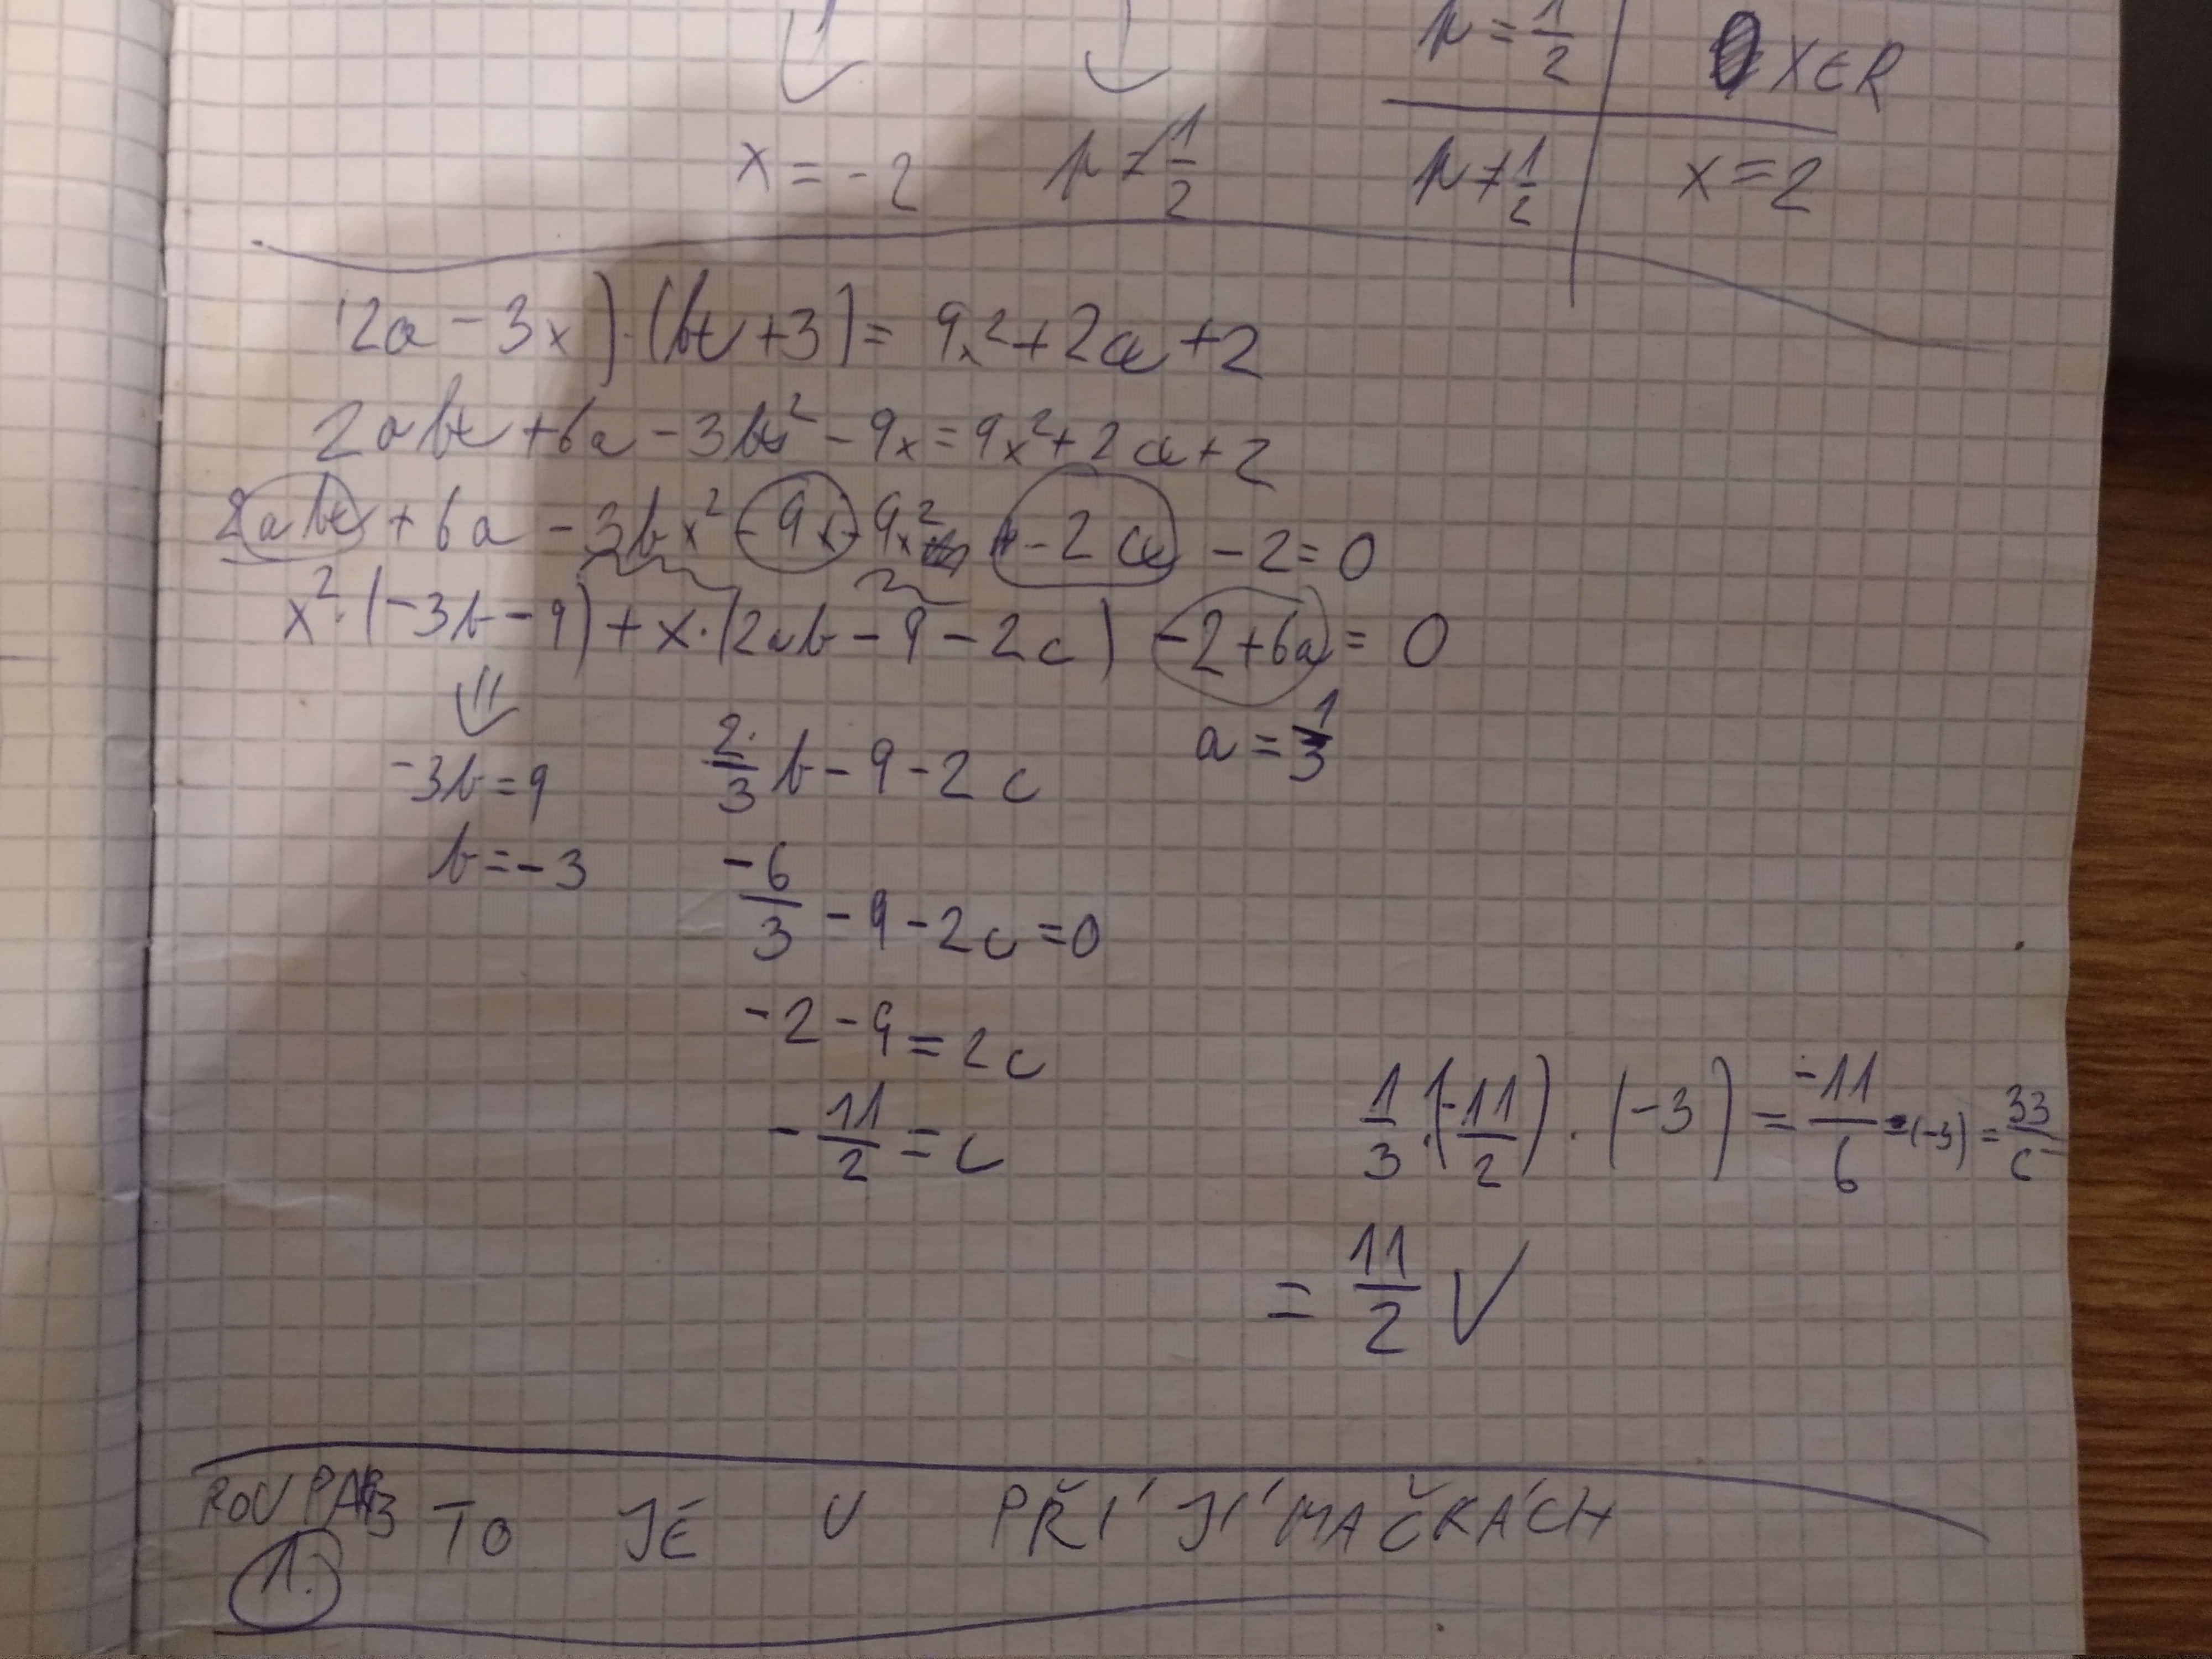 p = 1/2 | x∈R
x = -2 p ≠ 1/2 p ≠ 1/2 | x = 2
(2a - 3x)·(bx + 3) = 9x² + 2cx + 2
2abx + 6a - 3bx² - 9x = 9x² + 2cx + 2
2abx + 6a - 3bx² - 9x - 9x² - 2cx - 2 = 0
x²·(-3b - 9) + x·(2ab - 9 - 2c) -2 + 6a = 0
-3b = 9 2/3 b - 9 - 2c a = 1/3
b = -3 -6/3 - 9 - 2c = 0
-2 - 9 = 2c
-11/2 = c 1/3·(-11/2)·(-3) = -11/6·(-3) = 33/6
= 11/2 √
ROV PAR3 TO JE V PŘÍJÍMAČKÁCH
1.